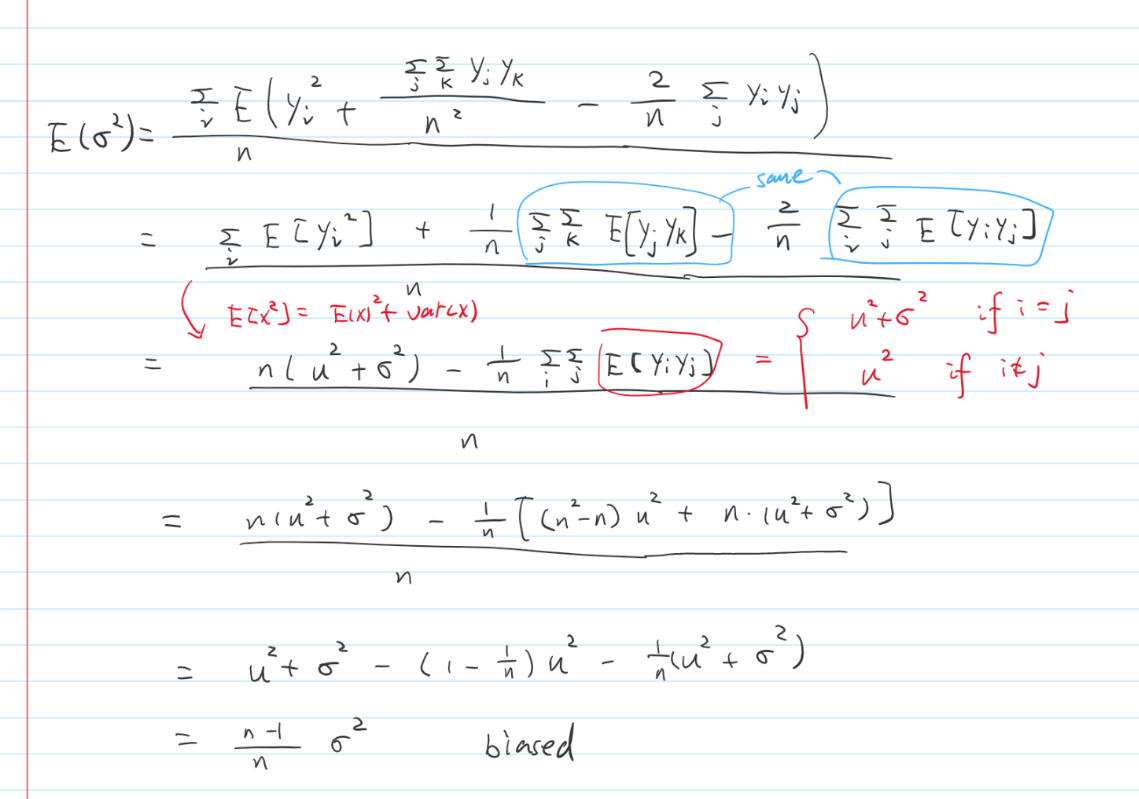 E(σ²) = Σᵢ E(yᵢ² + ΣⱼΣₖ yⱼyₖ / n² − 2/n Σⱼ yᵢyⱼ) / n
same
= (Σᵢ E[yᵢ²] + 1/n ΣⱼΣₖ E[yⱼyₖ] − 2/n ΣᵢΣⱼ E[yᵢyⱼ]) / n
E[x²] = E(x)² + var(x)
= (n(u² + σ²) − 1/n ΣᵢΣⱼ E(yᵢyⱼ)) / n = { u² + σ² if i = j
u² if i ≠ j
= (n(u² + σ²) − 1/n [(n²−n) u² + n·(u² + σ²)]) / n
= u² + σ² − (1 − 1/n) u² − 1/n (u² + σ²)
= n−1/n σ² biased